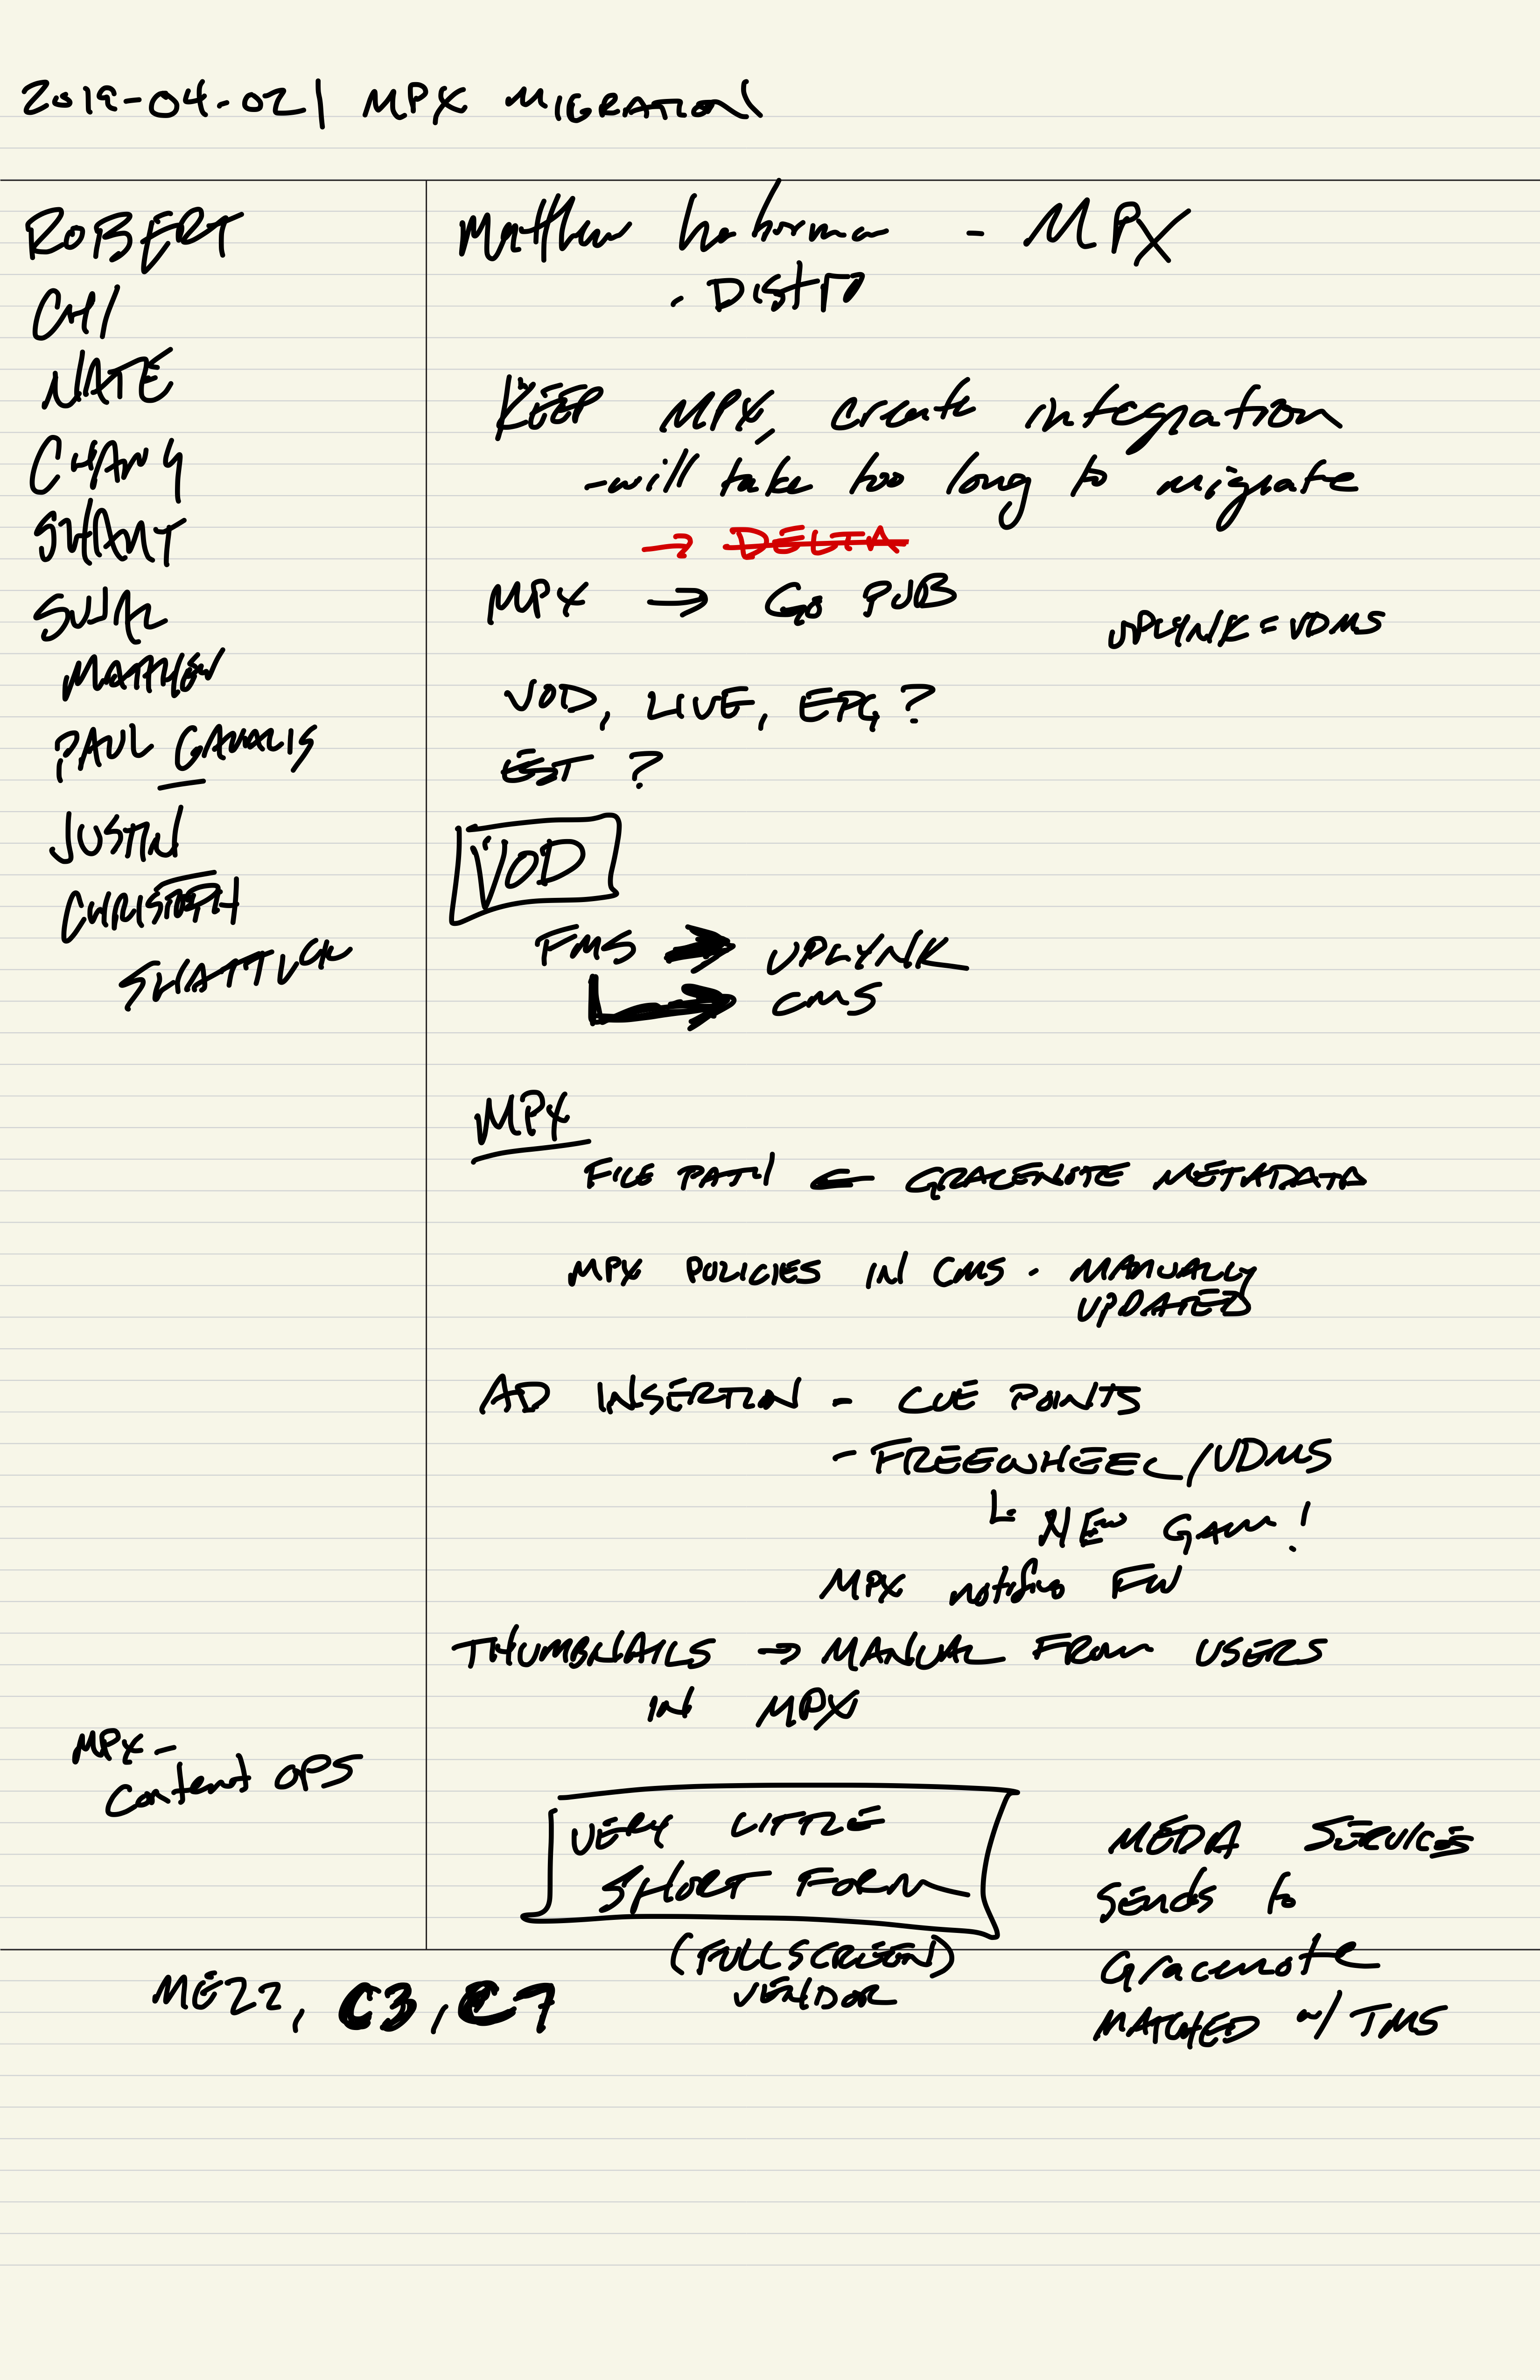 2019-04-02 | MPX MIGRATION
ROBERT
CHI
NATE
CHANG
SHANT
SUJAL
MATTHEW
PAUL
JUSTIN
CHRISTOPH
SHATTUCK
MPX -
Content OPS
Matthew - MPX
- DISTRO
KEEP MPX, create integration
- will take too long to migrate
→ DELTA
MPX → GO PUB
UPLYNK = VDMS
VOD, LIVE, EPG ?
EST ?
VOD
FMS → UPLYNK
→ CMS
MPX
FILE PATH ← GRACENOTE METADATA
MPX POLICIES IN CMS - MANUALLY
UPDATED
AD INSERTION - CUE POINTS
- FREEWHEEL / VDMS
NEW GAM !
MPX notifies FW
THUMBNAILS → MANUAL FROM USERS
IN MPX
VERY LITTLE
SHORT FORM
(FULLSCREEN)
VENDOR
MEDIA SERVICES
Sends to
Gracenote
MATCHED w/ TMS
MEZZ, C3, C7